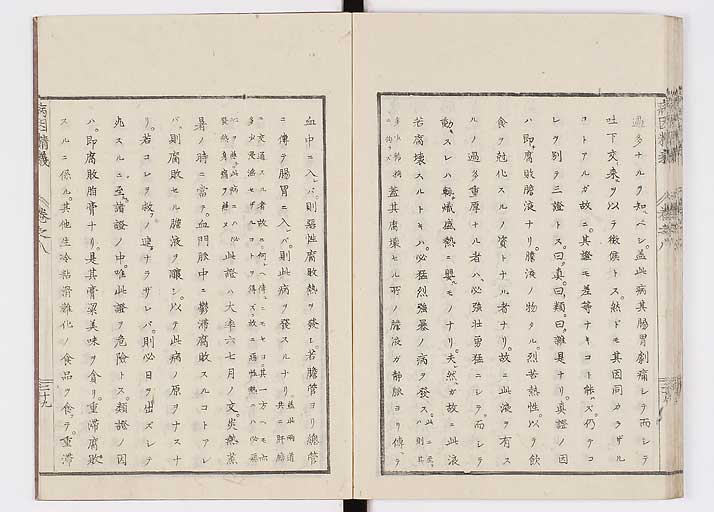 過多ナルヲ知ベシ。蓋此病其腸胃劇痛シテ而シテ
吐下交來ヲ以テ徴候トス。然ドモ其因同カラザル
コトアルガ故ニ其證モ差等ナキコト能ハズ。仍テコ
レヲ別テ三證トス。曰眞。曰類。曰雜是ナリ。眞證ノ因
ハ即腐敗膽液ナリ。膽液ノ物タル。烈苦熱性。以テ飲
食ヲ尅化スルノ資トナル者ナリ。故ニ此液ヲ有ス
ルノ過多重厚ナル者ハ、必強壮勇猛ニシテ。而シテ
動スレハ輙熾盛熱ニ嬰ルモノナリ。夫然ガ故ニ此液
若腐壊スルトキハ。必猛烈強暴ノ病ヲ發ス。
蓋其腐壊セル所ノ膽液ガ静脈ヨリ傳テ
血中ニ入バ。則惡性腐敗熱ヲ發シ。若膽管ヨリ總管
ニ傳テ腸胃ニ入バ。則此病ヲ發スルナリ
此證ハ大率六七月ノ交。炎熱蒸
暑ノ時ニ當テ。血門脉中ニ鬱滞腐敗スルコトアレ
バ。則腐敗セル膽液ヲ釀シ。以テ此病ノ原ヲナスナ
リ。若コレヲ救フノ速ナラザレバ。則必日ヲ出ズシテ
丸スルニ至。諸證ノ中。唯此證ヲ危険トス。類證ノ因
ハ。即腐敗脂膏ナリ。是其膏粱美味ヲ貪リ。重滞腐敗
スルニ係ル。其他生冷粘滑難化ノ食品ヲ食テ。重滞
病因精義
卷之八
三十九